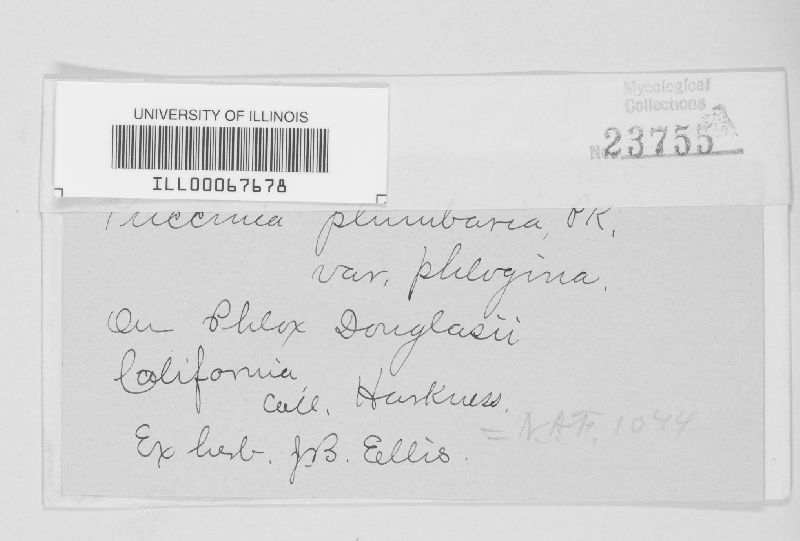 UNIVERSITY OF ILLINOIS
ILL00067678
Mycological
Collections
No. 23755
A
Puccinia plumbaria, PK.
var. phlogina.
On Phlox Douglasii
California
Coll. Harkness.
= N.A.F. 1044
Ex herb. J.B. Ellis.